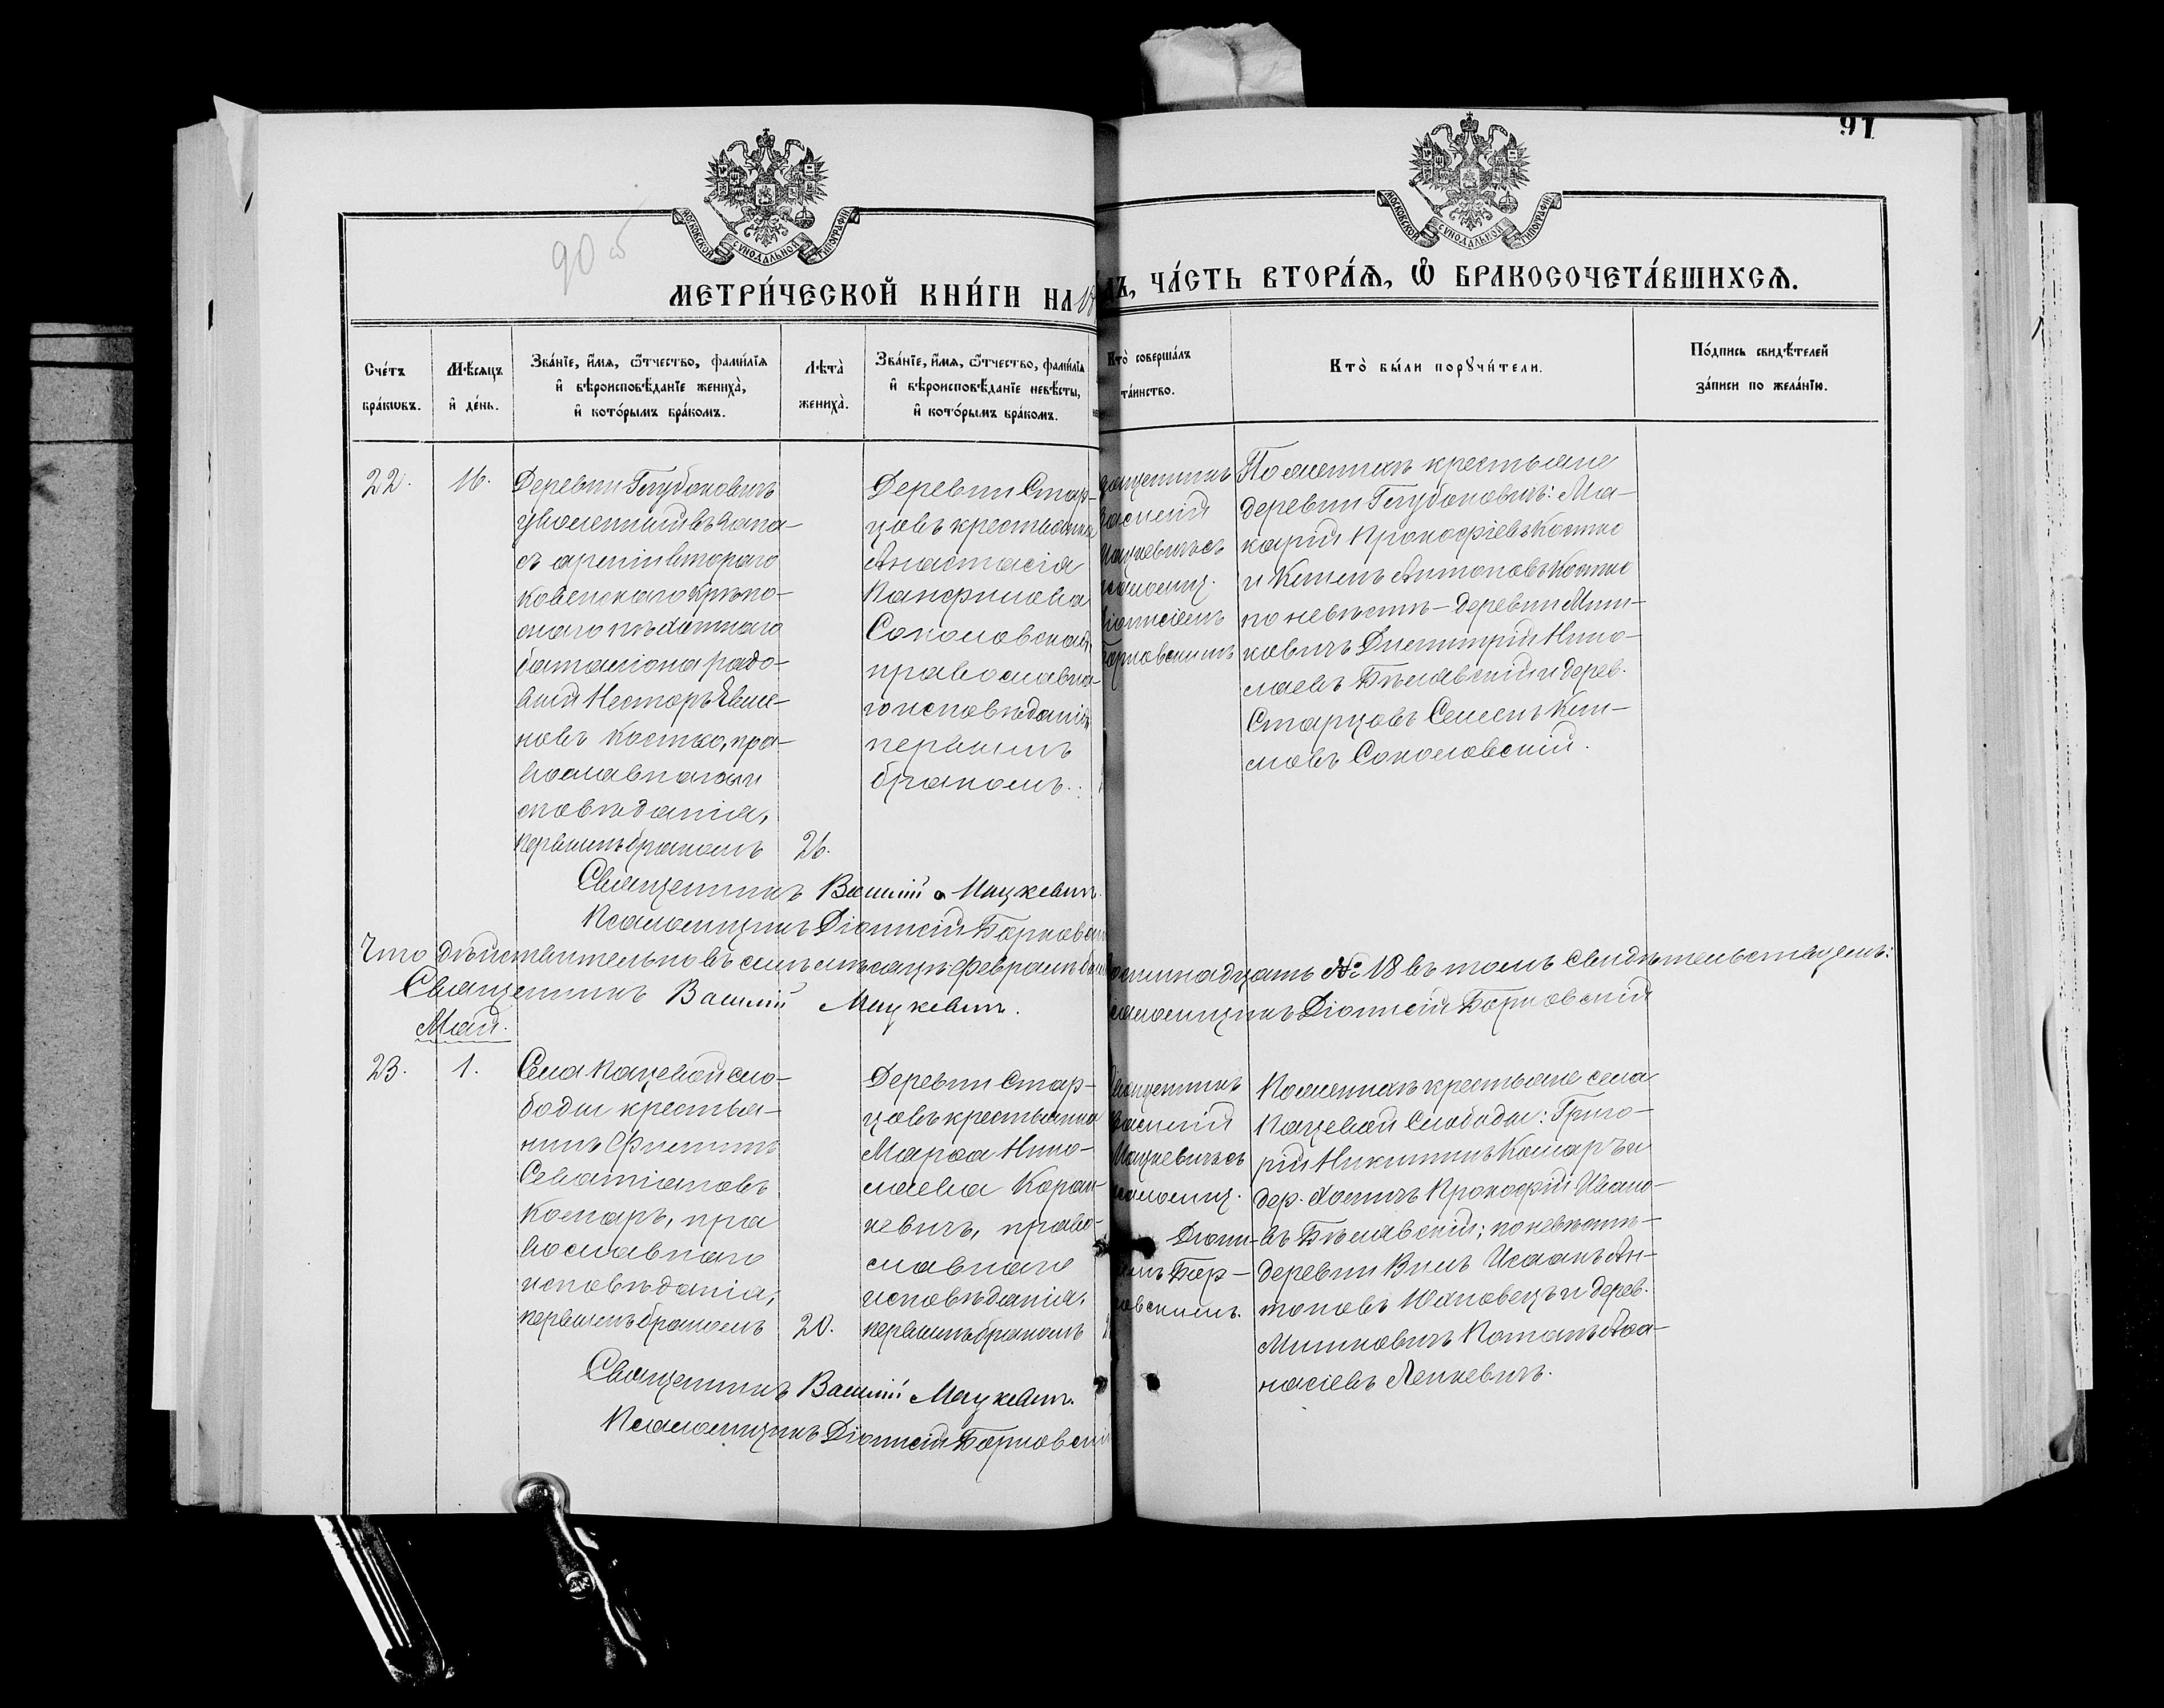 91
90 об
МОСКОВСКОЙ СѴНОДАЛЬНОЙ ТИПОГРАФІИ
МОСКОВСКОЙ СѴНОДАЛЬНОЙ ТИПОГРАФІИ
МЕТРИ́ЧЕСКОЙ КНИ́ГИ НА 18
ДЪ, ЧА́СТЬ ВТОРА́Ѧ, Ѡ҆ БРАКОСОЧЕТА́ВШИХСѦ.
Сче́тъ бра́кѡвъ.
Мѣ́сѧцъ и҆ де́нь.
Зва́нїе, и҆́мѧ, ѻ҆́тчество, фамѝлїѧ
и҆ вѣроисповѣ́данїе жениха̀,
и҆ кото́рымъ бра́комъ.
Лѣта̀ жениха̀.
Зва́нїе, и҆́мѧ, ѻ҆́тчество, фамѝлїѧ
и҆ вѣроисповѣ́данїе невѣ́сты,
и҆ кото́рымъ бра́комъ.
Кто̀ соверша́лъ
та́инство.
Кто̀ бы́ли порꙋчи́тели.
По́дпись свидѣ́телей
за́писи по жела́нїю.
22.
16.
Деревни Голубовичъ
уволенный въ запа-
съ арміи втораго
Ковенскаго крѣпо-
снаго пѣхотнаго
баталіона рядо-
вый Несторъ
новъ Костко, пра-
вославнаго и
сповѣданія,
первымъ бракомъ
26.
Деревни Стар-
цовъ крестьянка
Анастасія
Панфилова
Соколовская,
православна-
го исповѣданія
первымъ
бракомъ.
вященникъ
Василій
Мацкевичъ съ
саломщ.
іонисіемъ
Борковскимъ
По женихѣ крестьяне
деревни Голубовичъ: Ма-
карій Прокофіевъ Костко
и Антоновъ Костко
по невѣстѣ – деревни Миш-
ковичъ Димитрій Нико-
лаевъ Бѣлявскій и дерев.
Старцовъ Семенъ Кли-
мовъ Соколовскій.
Священникъ Василій Мацкевичъ.
Псаломщикъ Діонисій Борковскі
Что дѣйствительно въ семъ мѣсяцѣ февралѣ
осьмнадцать № 18 въ томъ свидѣтельствуемъ:
Священникъ Василій Мацкевичъ.
саломщикъ Діонисій Борковскій
Май.
23.
1.
Села Пацевой сло-
боды крестья-
нинъ Филиппъ
Севастіановъ
Комаръ, пра
вославнаго
исповѣданія,
первымъ бракомъ
20.
Деревни Стар-
цовъ крестьянка
Марѳа Нико-
лаева Коран-
кевичъ, право-
славнаго
исповѣданія,
первымъ бракомъ
вященникъ
Василій
Мацкевичъ съ
саломщ.
Діони-
емъ Бор-
ковскимъ.
По женихѣ крестьяне села
Пацевой Слободы: Григо-
рій Никитинъ Комаръ и
дер. Прокофій Ивано-
въ Бѣлявскій; по невѣстѣ –
деревни Исаакъ Ан-
тоновъ и дерев.
Мишковичъ Потапъ Аѳа-
насіевъ
Священникъ Василій Мацкевичъ.
Псаломщикъ Діонисій Борковскій